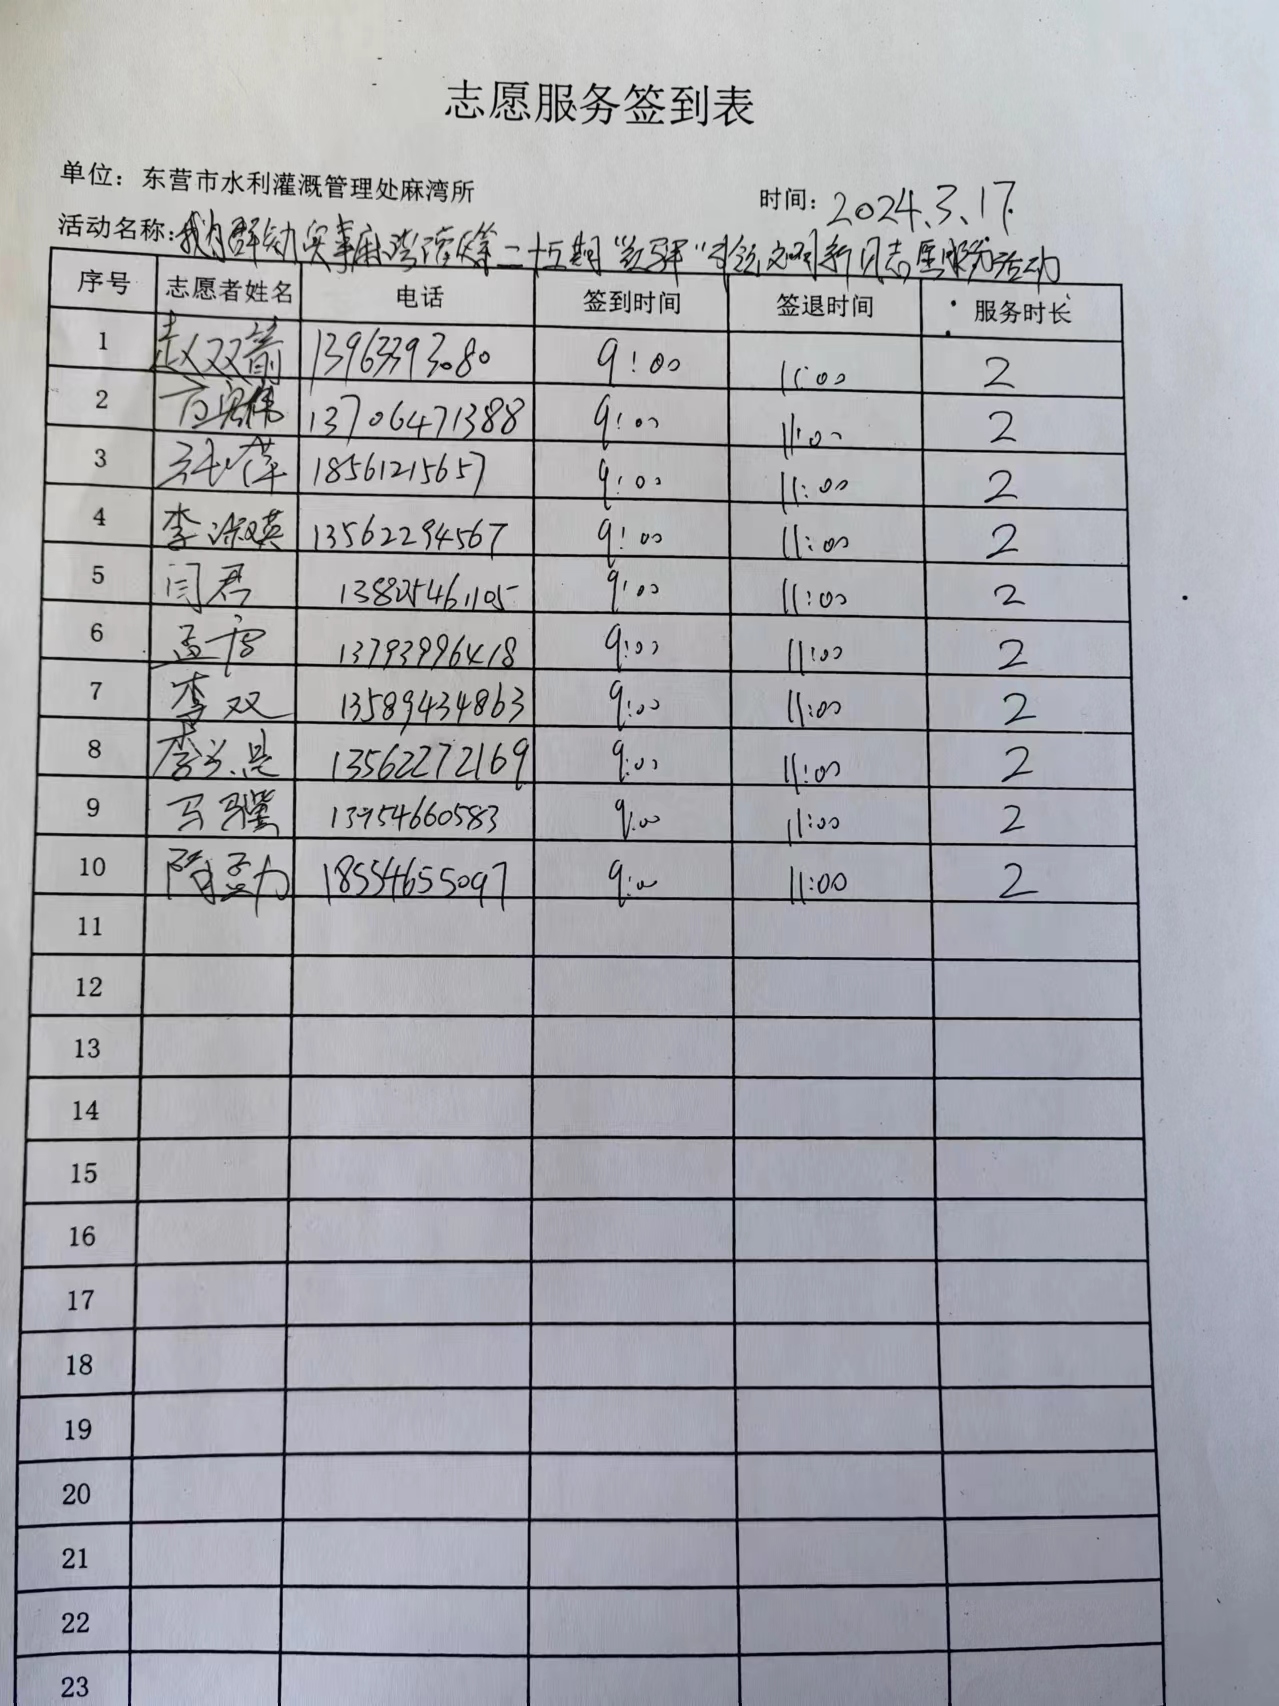 志愿服务签到表
单位：东营市水利灌溉管理处麻湾所
时间：2024.3.17.
活动名称：我为群众办实事麻湾灌区第二十五期"黄驿"引领文明新风志愿服务活动
序号 志愿者姓名 电话 签到时间 签退时间 服务时长
1 赵双箭 13963393080 9:00 11:00 2
2 13706471388 9:00 11:00 2
3 张萍 18561215657 9:00 11:00 2
4 李淑英 13562294567 9:00 11:00 2
5 闫君 138825461105 9:00 11:00 2
6 孟雷 13793996418 9:00 11:00 2
7 李双 13589434863 9:00 11:00 2
8 李兰昆 13562272169 9:00 11:00 2
9 马骥 13954660583 9:00 11:00 2
10 隋孟力 18554655097 9:00 11:00 2
11
12
13
14
15
16
17
18
19
20
21
22
23